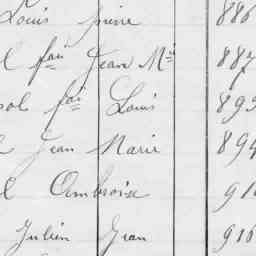 Louis Pierre 886
l fari Jean Mie 887
ol fai Louis 89
Jean Marie 894
l Ambroise 91
Julien Jean 916